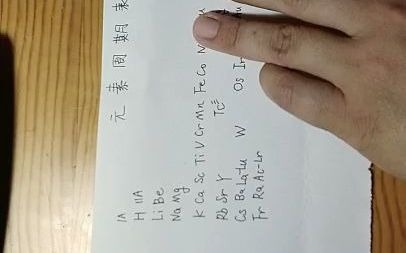 元素周期表
IA
H IIA
Li Be
Na Mg
K Ca Sc Ti V Cr Mn Fe Co
Rb Sr Y Tc
Cs Ba La-Lu W Os Ir
Fr Ra Ac-Lr